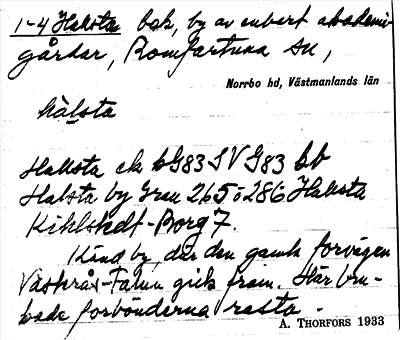 1-4 Halsta bok, by av enbart akademi-
gårdar, Romfartuna sn,
Norrbo hd, Västmanlands län
hàlsta
Hallsta ek bG83 SV G83 bb
Halsta by Grau 265 o 286 Hallsta
Kihlstedt-Borg 7.
Känd by, där den gamla förvägen
Västerås-Falun gick fram. Här bru-
kade forbönderna rasta.
A. THORFORS 1933